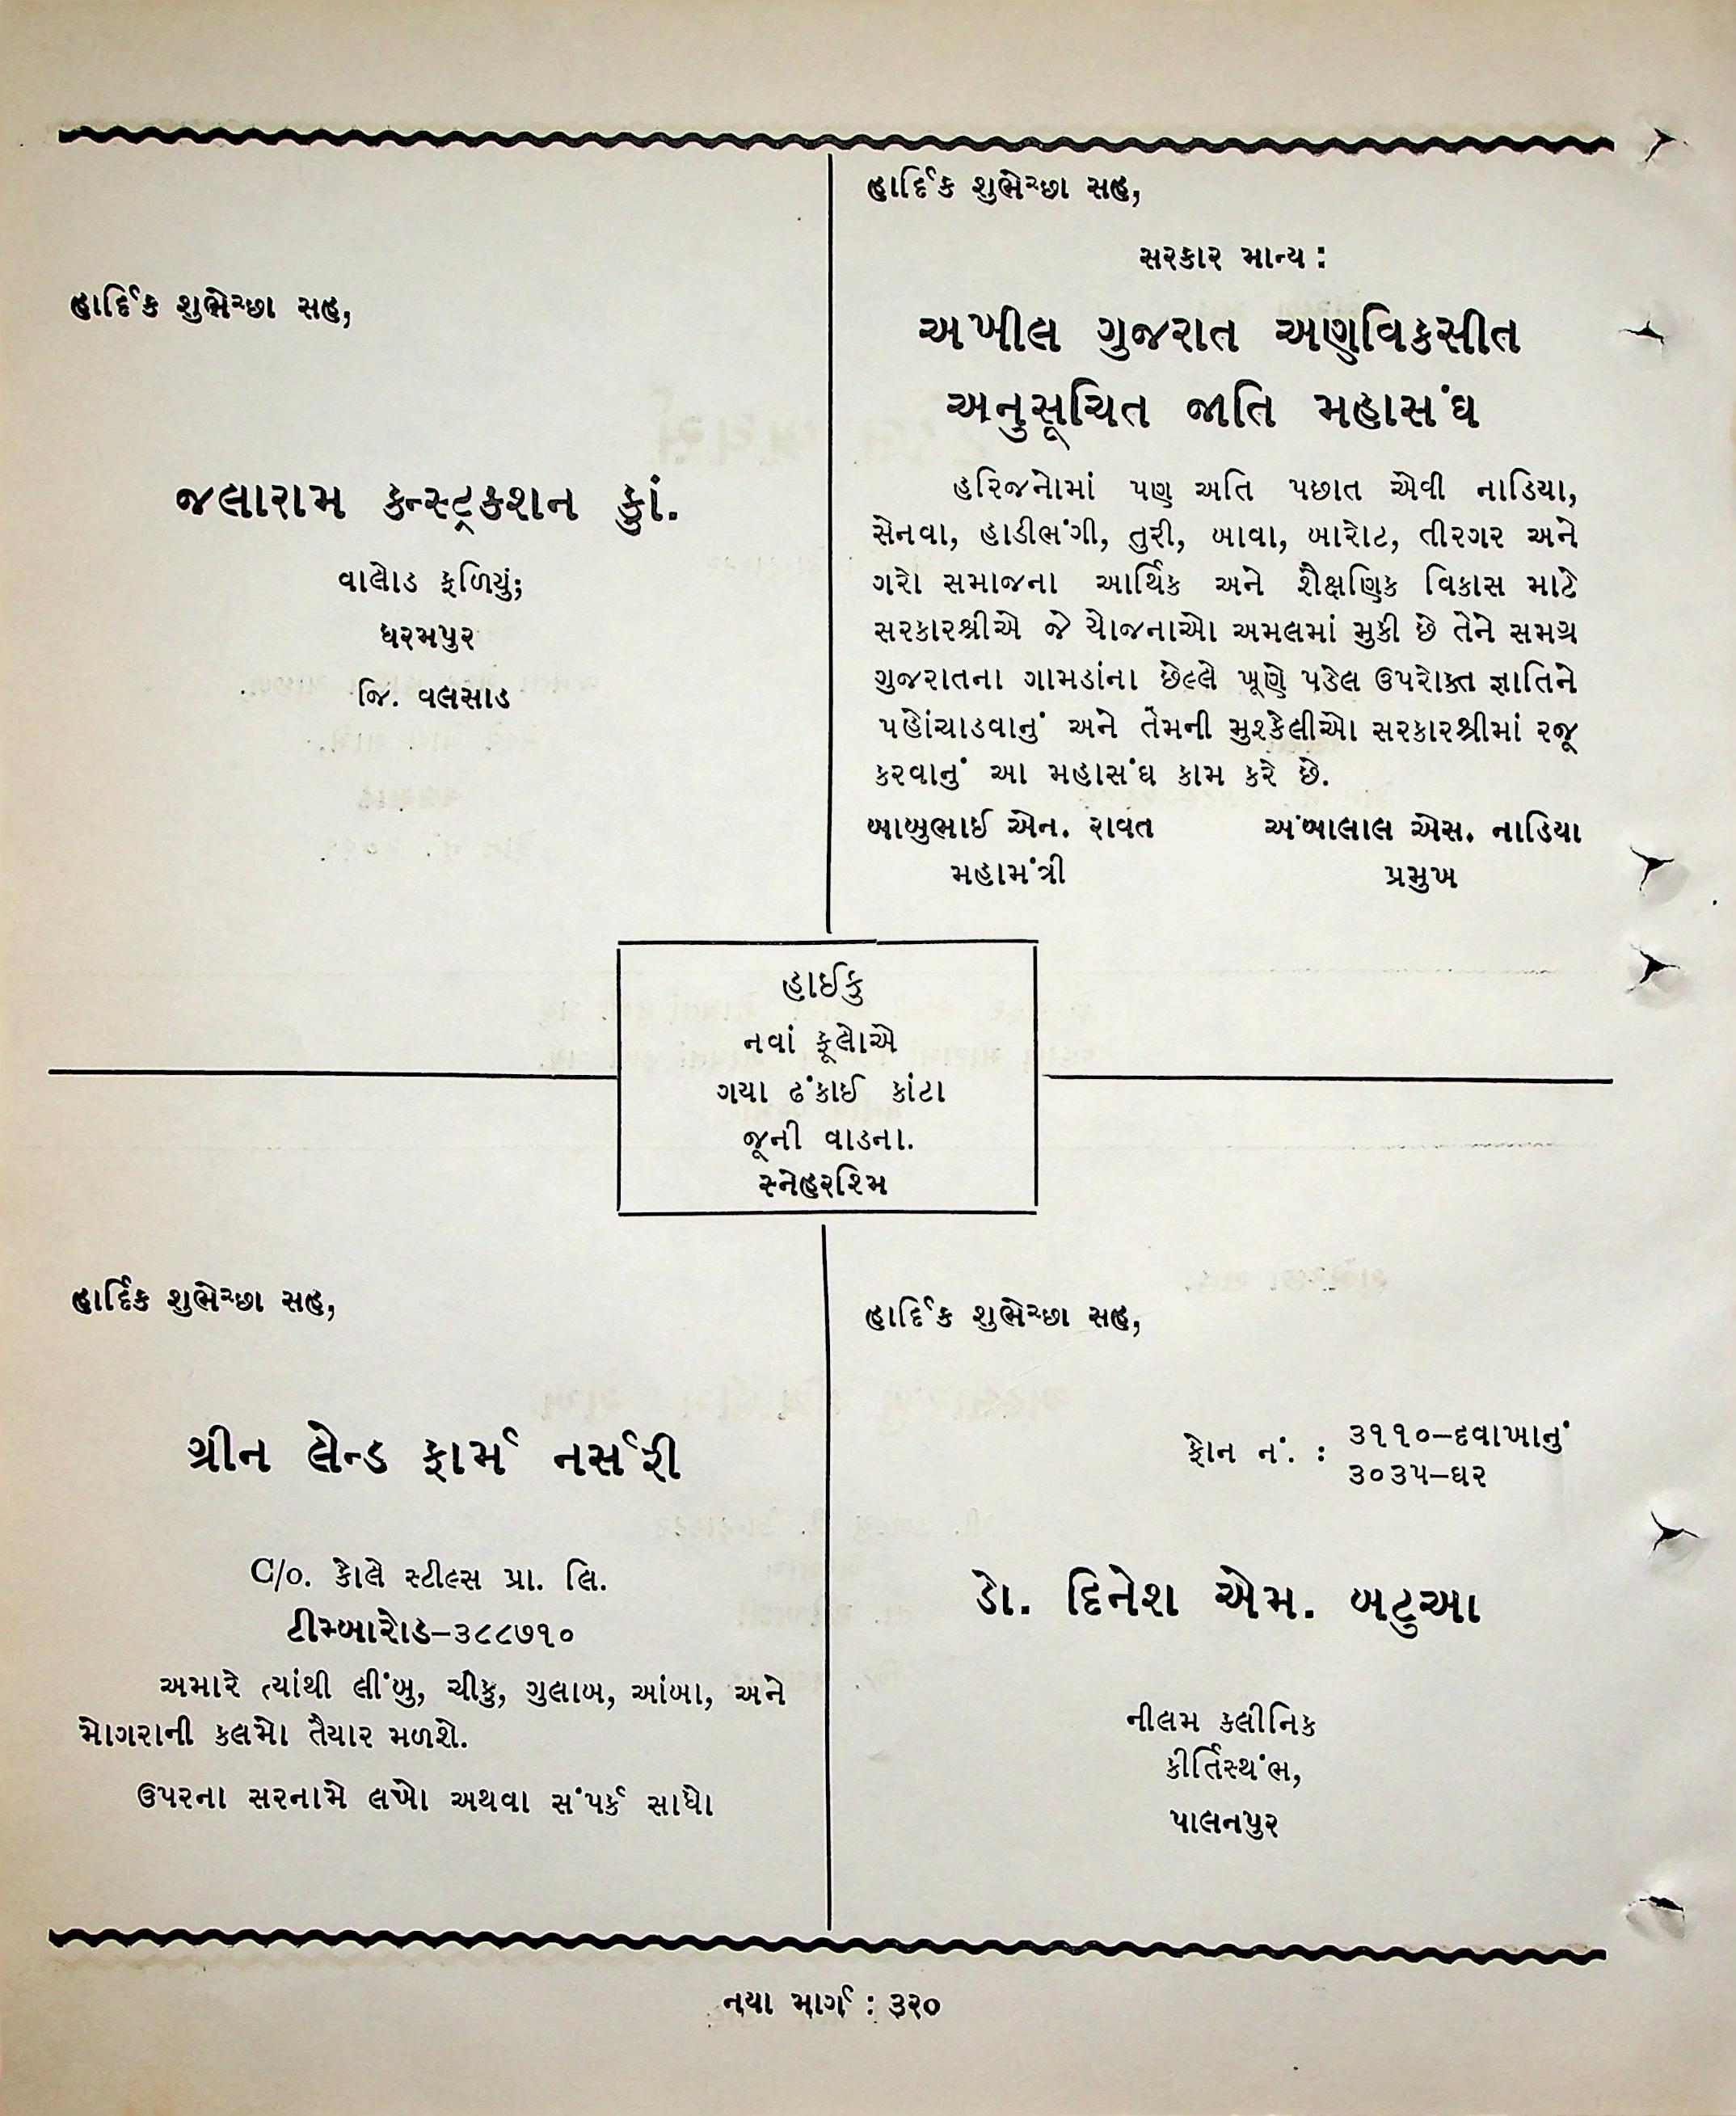 હાર્દિક શુભેચ્છા સહ,
જલારામ કન્સ્ટ્રકશન કું.
વાલોડ ફળિયું;
ધરમપુર
જિ. વલસાડ
હાર્દિક શુભેચ્છા સહ,
સરકાર માન્ય :
અખીલ ગુજરાત અણવિકસીત
અનુસૂચિત જાતિ મહાસંઘ
હરિજનોમાં પણ અતિ પછાત એવી નાડિયા,
સેનવા, હાડીભંગી, તુરી, બાવા, બારોટ, તીરગર અને
ગરો સમાજના આર્થિક અને શૈક્ષણિક વિકાસ માટે
સરકારશ્રીએ જે યોજનાઓ અમલમાં મુકી છે તેને સમગ્ર
ગુજરાતના ગામડાંના છેલ્લે ખૂણે પડેલ ઉપરોક્ત જ્ઞાતિને
પહોંચાડવાનું અને તેમની મુશ્કેલીઓ સરકારશ્રીમાં રજૂ
કરવાનું આ મહાસંઘ કામ કરે છે.
બાબુભાઈ એન. રાવત અંબાલાલ એસ. નાડિયા
મહામંત્રી પ્રમુખ
હાઈકુ
નવાં ફૂલોએ
ગયા ઢંકાઈ કાંટા
જૂની વાડના.
સ્નેહરશ્મિ
હાર્દિક શુભેચ્છા સહ,
ગ્રીન લેન્ડ ફાર્મ નર્સરી
C/o. કોલે સ્ટીલ્સ પ્રા. લિ.
ટીમ્બારોડ–૩૮૮૭૧૦
અમારે ત્યાંથી લીંબુ, ચીકુ, ગુલાબ, આંબા, અને
મોગરાની કલમો તૈયાર મળશે.
ઉપરના સરનામે લખો અથવા સંપર્ક સાધો
હાર્દિક શુભેચ્છા સહ,
ફોન નં. : ૩૧૧૦–દવાખાનું
૩૦૩૫–ઘર
ડો. દિનેશ એમ. બટુઆ
નીલમ કલીનિક
કીર્તિસ્થંભ,
પાલનપુર
નયા માર્ગ : ૩૨૦